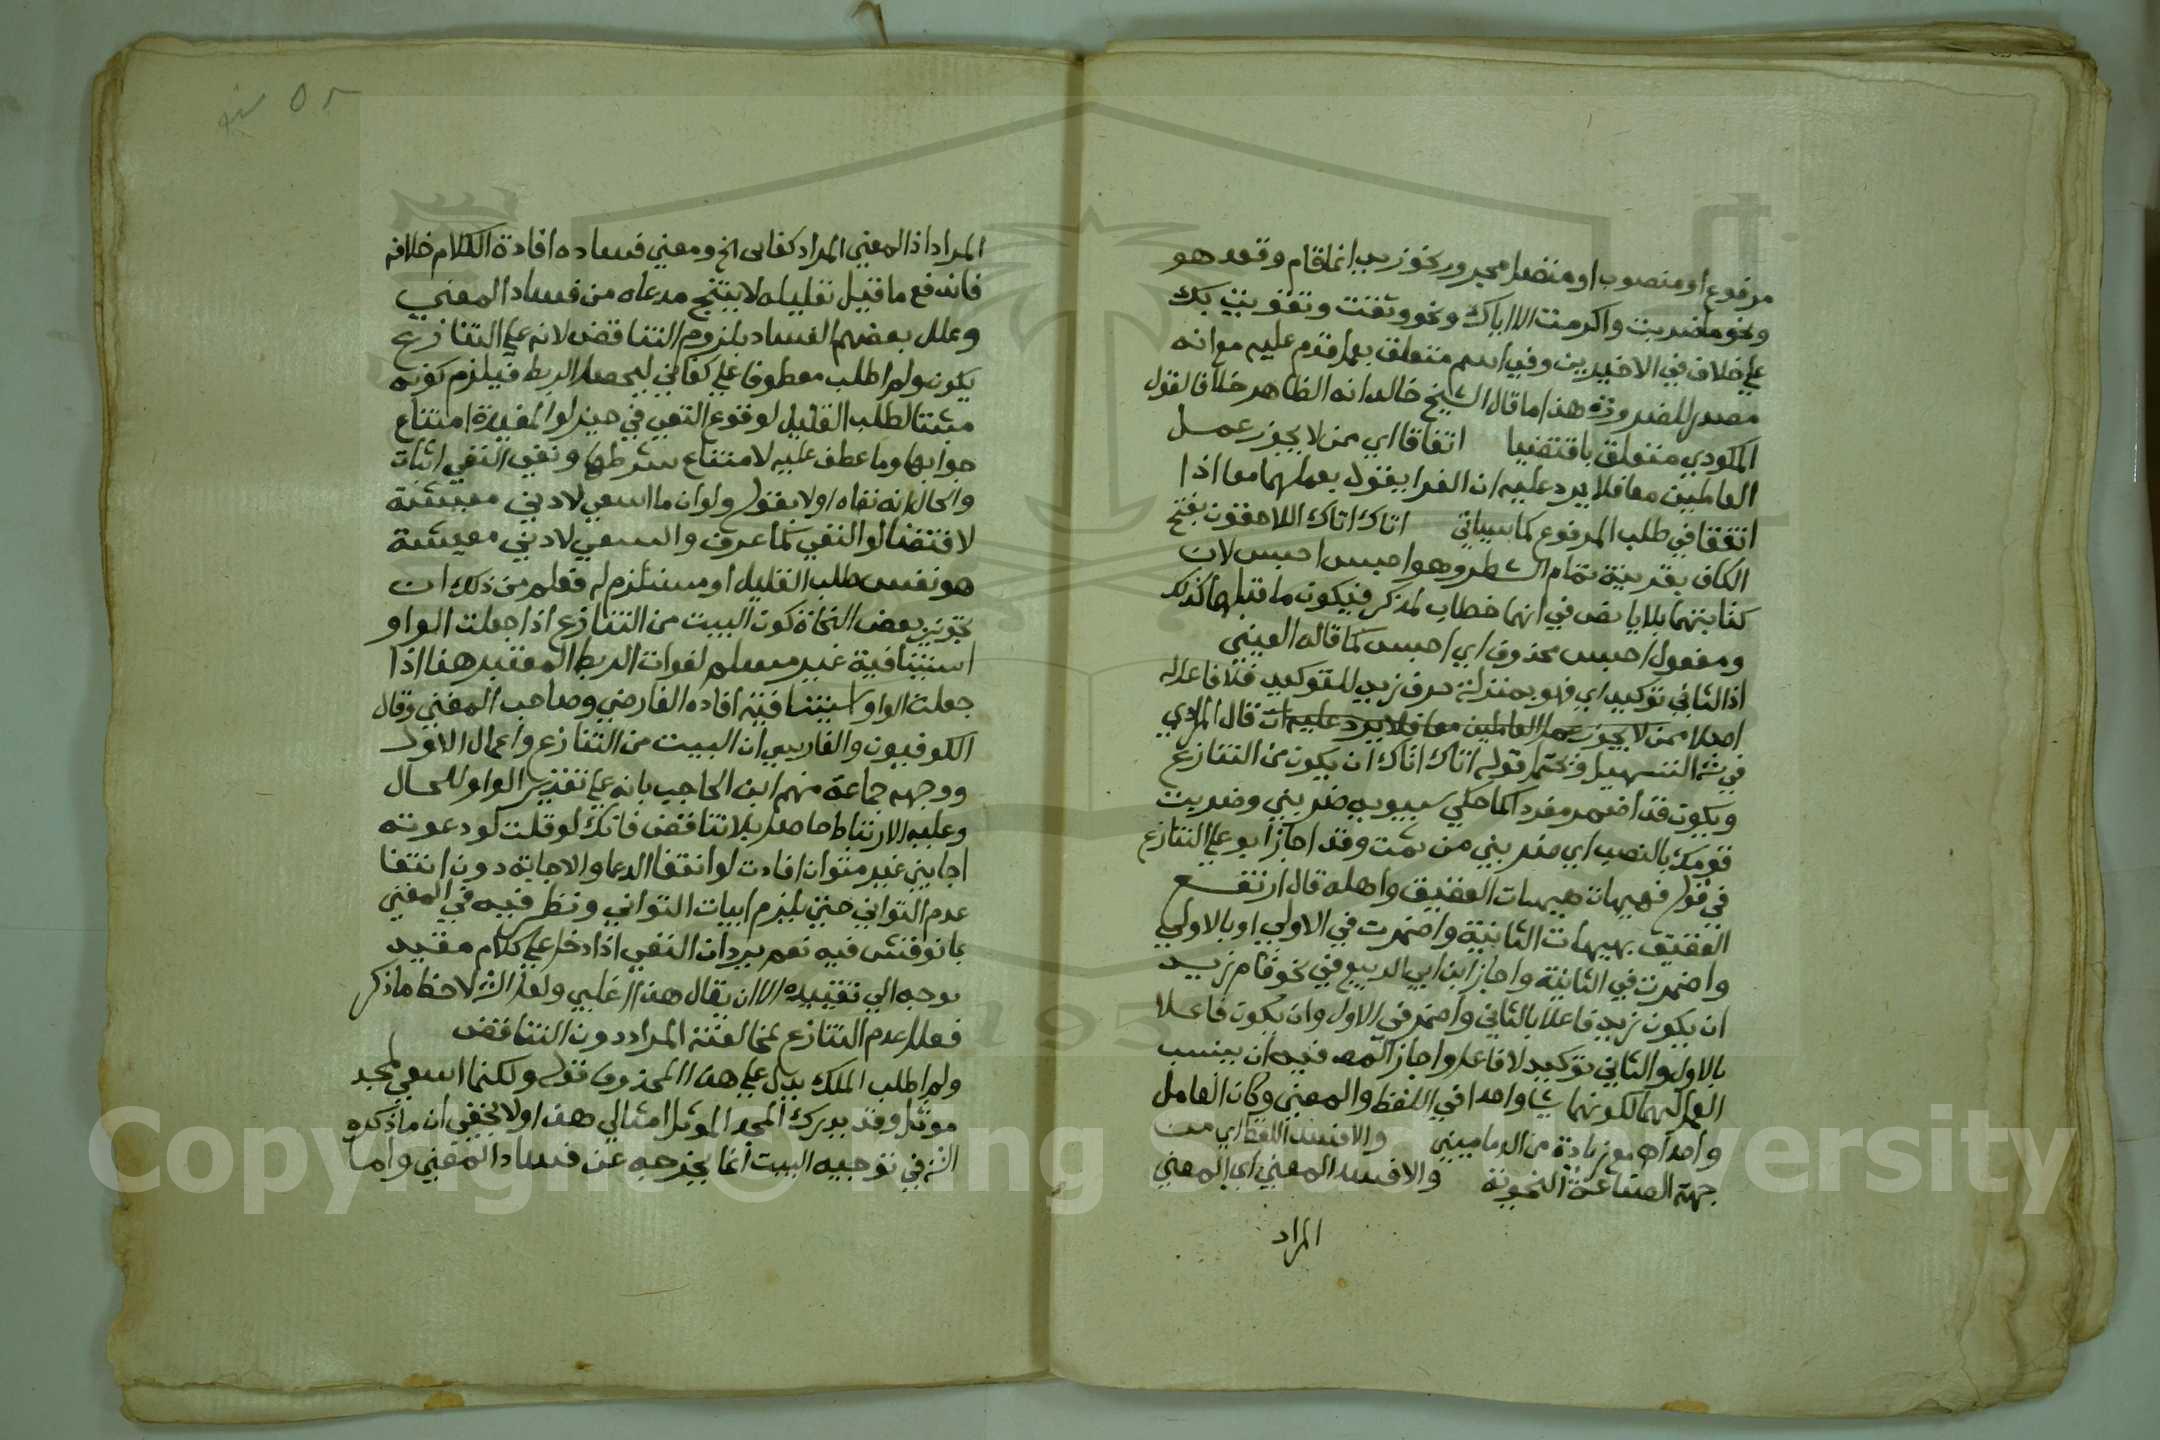 مرفوع او منصوب او متصل مجرور نحو زيد انما قام وقعد هو
ونحو ما ضربت واكرمت الا اياك ونحو وثقت وتقويت بك
علي خلاف في الاخيرين وفي اسم متعلق بعمل قدم عليه مع انه
مصدر للضرورة هذا ما قال الشيخ خالد انه الظاهر خلافا لقول
المكودي متعلق باقتضيا اتفاقا اي ممن لا يجوز عمل
العاملين معا فلا يرد عليه ان الفرا يقول بعملهما معا اذا
اتفقا في طلب المرفوع كما سياتي اتاك اتاك اللاحقون بفتح
الكاف بقرينة تمام الشطر وهو احبس احبس لان
كتابتهما بلا يا نص في انهما خطاب لمذكر فيكون ما قبلهما كذلك
ومفعول احبس محذوف اي احبس كما قاله العيني
اذ الثاني توكيد اي فهو بمنزلة حرف زيد للتوكيد فلا فاعل له
اصلا ممن لا يجوز عمل العاملين معا فلا يرد عليه ان قال المرادي
في شه التسهيل ويحتمل قوله اتاك اتاك ان يكون من التنازع
ويكون قد اضمر مفردا كما حكي سيبويه ضربني وضربت
قومك بالنصب اي ضربني من ثمت وقد اجاز ابو علي التنازع
في قوله فهيهات هيهات العقيق واهله قال ارتفع
العقيق بهيهات الثانية واضمرت في الاولي او بالاولي
واضمرت في الثانية واجاز ابن ابي الربيع في نحو قام قام زيد
ان يكون زيد فاعلا بالثاني واضمر في الاول وان يكون فاعلا
بالاول والثاني توكيد لا فاعل واجاز المص فيه ان ينسب
العمل لهما لكونهما شيا واحدا في اللفظ والمعني وكان العامل
واحد اه مع زيادة من الدماميني والا فسد اللفظ اي من
جهة الصناعة النحوية والا فسد المعني اي المعني
المراد
المراد اذ المعني المراد كفاني الخ ومعني فساده افادة الكلام خلافه
فاندفع ما قيل تعليله لا ينتج مدعاه من فساد المعني
وعلل بعضهم الفساد بلزوم التناقض لانه علي التنازع
يكون ولم اطلب معطوفا علي كفاني ليحصل الربط فيلزم كونه
مثبتا لطلب القليل لوقوع النفي في حيز لو المفيدة امتناع
جوابها وما عطف عليه لامتناع شرطها ونفي النفي اثبات
والحال انه نفاه اولا بقوله ولو ان ما اسعي لادني معيشة
لاقتضا لو النفي كما عرف والسعي لادني معيشة
هو نفس طلب القليل او مستلزم له فعلم من ذلك ان
تجويز بعض النحاة كون البيت من التنازع اذا جعلت الواو
استينافية غير مسلم لفوات الربط المعتبر هنا اذا
جعلت الواو استينافية افاده الفارضي وصاحب المغني وقال
الكوفيون والفارسي ان البيت من التنازع واعمال الاول
ووجهه جماعة منهم ابن الحاجب بانه علي تقدير الواو للحال
وعليه الارتباط حاصل بلا تناقض فانك لو قلت لو دعوته
اجابني غير متوان افادت لو انتفا الدعا والاجابة دون انتفا
عدم التواني حتي يلزم اثبات التواني ونظر فيه في المغني
بما نوقش فيه نعم يرد ان النفي اذا دخل علي كلام مقيد
توجه الي تقييده الا ان يقال هذا اغلبي ولعل الشه لاحظ ما ذكر
فعلل عدم التنازع بمخالفته المراد دون التناقض
ولم اطلب الملك يدل علي هذا المحذوف قوله ولكنما اسعي لمجد
موثل وقد يدرك المجد الموثل امثالي هذا ولا يخفي ان ما ذكره
الشه في توجيه البيت انما يخرجه عن فساد المعني واما